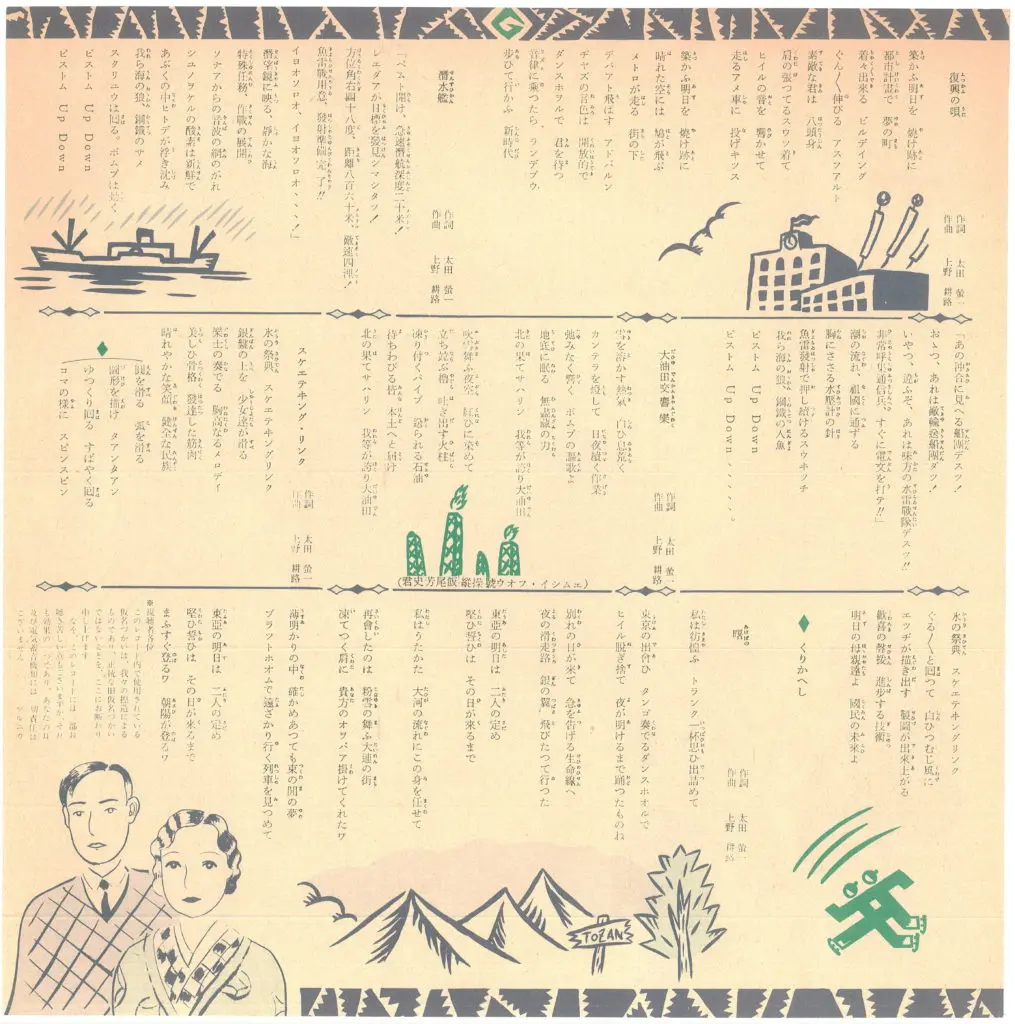 復興の唄
作詞 太田 螢一
作曲 上野 耕路
築かふ明日を 焼け跡に
都市計畫で 夢の町
着々出來る ビルデイング
ぐん〱伸びる アスフアルト
素敵な君は 八頭身
肩の張つてるスウツ着て
ヒイルの音を 響かせて
走るアメ車に 投げキツス
築かふ明日を 焼け跡に
晴れた空には 鳩が飛ぶ
メトロが走る 街の下
デパアト飛ばす アドバルン
ヂヤズの音色は 開放的で
ダンスホヲルで 君を待つ
音律に乗つたら、ランデブウ
歩びて行かふ 新時代
潛水艦
作詞 太田 螢一
作曲 上野 耕路
「ベント開け、急速潛航深度二十米!
レエダアが目標を發見シマシタッ!
方位角右四十八度、距離八百六十米、敵速四浬!
魚雷戰用意、發射準備完了!!
イヨオソロオ、イヨオソロオ、、、!」
潛望鏡に映る、靜かな海
特殊任務、作戰の展開
ソナアからの音波の網のがれ
シユノオケルの酸素は新鮮で
あぶくの中ピトデが浮き沈み
我ら海の狼、鋼鐵のサメ
スクリユウは回るッ、ポムプは動く
ピストム Up Down
ピストム Up Down
「あの沖合に見へる船團デスッ!
おぉつ、あれは敵輸送船團ダッ!
いやつ、違ふぞ、あれは味方の水雷戰隊デスッ!!
非常呼集通信兵、すぐに電文を打テ!!」
潮の流れ、祖國に通ずる
胸にささる水壓計の針
魚雷發射で押し續けるスウヰツチ
我ら海の狼、鋼鐵の人魚
ピストム Up Down
ピストム Up Down、、、、
大油田交響樂
作詞 太田 螢一
作曲 上野 耕路
雪を溶かす熱氣 白ひ息荒く
カンテラを燈して 日夜續く作業
弛みなく響く、ポムプの謳歌よ
地底に眠る 無盡藏の力
北の果てサハリン 我らが誇り大油田
吹雪舞ふ夜空 紅ひに染めて
立ち竝ぶ櫓 吐き出す火柱
凍り付くパイプ 送られる石油
待ちわびる皆 本土へと届け
北の果てサハリン 我らが誇り大油田
(エムシイ・フオウ號操縱 飯尾芳史君)
スケエテキング・リンク
作詞 太田 螢一
作曲 上野 耕路
氷の祭典 スケエテキングリンク
銀盤の上を 少女達が滑る
樂士の奏でる 胸高なるメロデイ
美しひ骨格 發達した筋肉
晴れやかな笑顔 健全な民族
圓を滑る 弧を滑る
圓形を描け タアンタアン
ゆつくり回る すばやく回る
コマの樣に スピンスピン
氷の祭典 スケエテキングリンク
ぐる〱と回つて 白ひつむじ風に
エツヂが描き出す 製圖が出來上がる
歡喜の聲援 進歩する技術
明日の母親達よ 國民の未來よ
くりかへし
作詞 太田 螢一
作曲 上野 耕路
私は彷徨ふ トランク一杯思ひ出詰めて
東京の出會ひ タンゴ奏でるダンスホオルで
ヒイル脱ぎ捨て 夜が明けるまで踊つたものね
別れの日が來て 急を告げる生命線へ
夜の滑走路 銀の翼 飛びたつて行つた
東亞の明日は 二人の定め
堅ひ誓ひは その日が來るまで
私はうたかた 大河の流れにこの身を任せて
再會したのは 粉雪の舞ふ大連の街
凍てつく肩に 貴方のオツバア掛けてくれたワ
薄明かりの中、確かめあつても束の間の夢
プラツトホオムで遠ざかり行く列車を見つめて
東亞の明日は 二人の定め
堅ひ誓ひは その日が來るまで
まふすぐ登るワ 朝陽が登るワ
※視聽者各位
このレコード内で使用されている
仮名づかいは、我々の捏造による
ものであり、正統な旧仮名づかい
ではないことを、ここにお断わり
申し上げます。
なお、このレコードには一部お
聴き苦しい点もございますが、それ
も効果の一つであり、あなたの耳
及び電気蓄音機類には一切責任は
ございません。
ゲルニカ
TOZAN
G